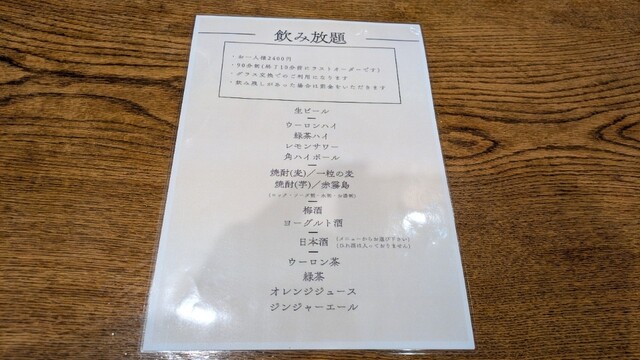 飲み放題
・お一人様2400円
・90分制(終了10分前ラストオーダーです)
・グラス交換でのご利用になります
・飲み残しがあった場合は罰金をいただきます
生ビール
ウーロンハイ
緑茶ハイ
レモンサワー
角ハイボール
焼酎(麦)／一粒の麦
焼酎(芋)／赤霧島
(ロック・ソーダ割・水割・お湯割)
梅酒
ヨーグルト酒
日本酒
(メニューからお選び下さい)
ウーロン茶
緑茶
オレンジジュース
ジンジャーエール